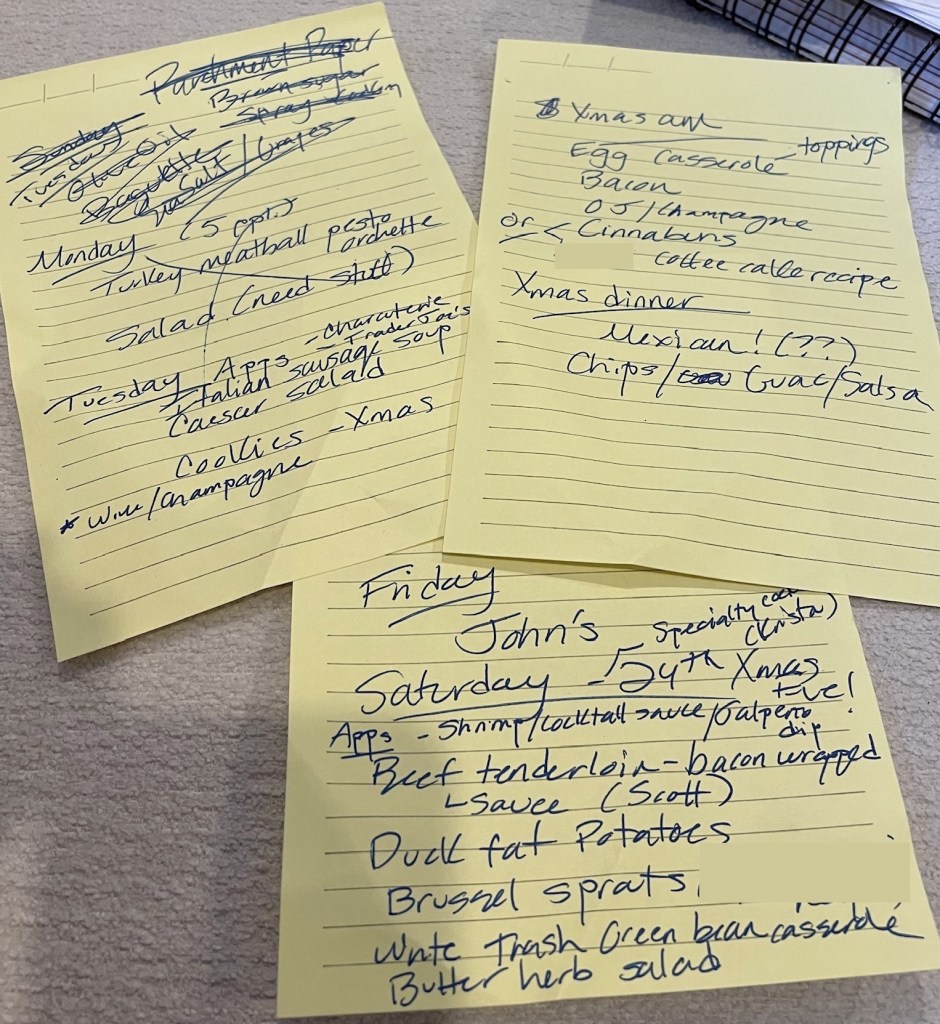 Parchment Paper
Brown sugar
Spray
Sunday
Tuesday
Olive Oil
Baguette
Sea Salt / Grapes
Monday (5 ppl.)
Turkey meatball pesto
orchette
Salad (need stuff)
Tuesday Apps - Charcuterie
- Trader Joe's
Italian sausage soup
Caesar salad
Cookies - Xmas
* Wine/Champagne
Xmas am
Egg casserole - toppings
Bacon
OJ/Champagne
or < Cinnabuns
coffee cake recipe
Xmas dinner
Mexican! (??)
Chips/ Guac/Salsa
Friday
John's
Specialty
(Krista)
Saturday - 24th Xmas
Eve!
Apps - Shrimp/cocktail sauce/Jalpeno
dip
Beef tenderloin - bacon wrapped
sauce (Scott)
Duck fat Potatoes
Brussel sprats
Trash Green bean casserole
Butter herb salad